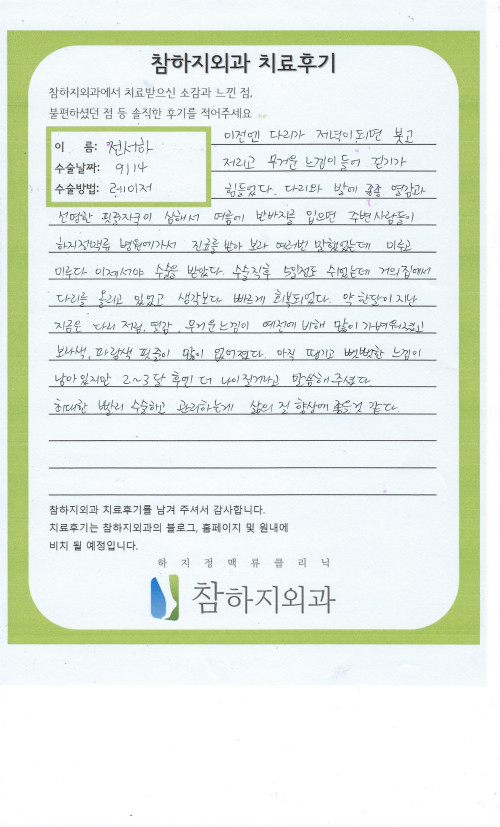 참하지외과 치료후기
참하지외과에서 치료받으신 소감과 느낀 점,
불편하셨던 점 등 솔직한 후기를 적어주세요
이 름: 전서하
수술날짜: 9/14
수술방법: 레이저
이전엔 다리가 저녁이되면 붓고
저리고 무거운 느낌이 들어 걷기가
힘들었다. 다리와 발에 열감과
선명한 핏줄자국이 심해서 여름에 반바지를 입으면 주변사람들이
하지정맥류 병원에가서 진료를 받아 보라 여러번 말했었는데 미루고
미루다 이제서야 수술을 받았다. 수술직후 5일정도 쉬었는데 거의 집에서
다리를 올리고 있었고 생각보다 빠르게 회복되었다. 약 한달이 지난
지금은 다리 저림, 열감, 무거운느낌이 예전에 비해 많이 가벼워졌고
보라색, 파랑색 핏줄이 많이 없어졌다. 아직 땡기고 뻣뻣한 느낌이
남아있지만 2~3달 후엔 더 나아질거라고 말씀해주셨다.
최대한 빨리 수술하고 관리하는게 삶의 질 향상에 좋을것 같다.
참하지외과 치료후기를 남겨 주셔서 감사합니다.
치료후기는 참하지외과의 블로그, 홈페이지 및 원내에
비치 될 예정입니다.
하지정맥류클리닉
참하지외과